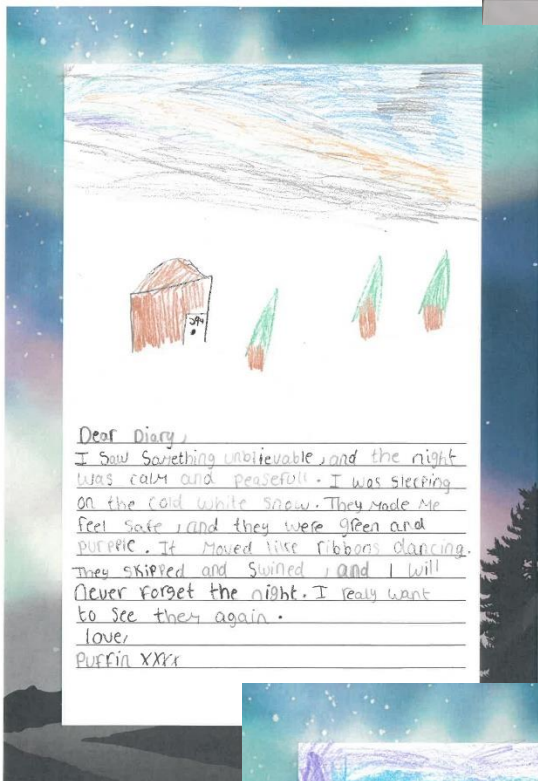 Dear Diary,
I Saw Something unbilevable, and the night
was calm and peasefull. I was sleeping
on the cold white snow. They made me
feel safe, and they were green and
purpple. It moved like ribbons dancing.
They skipped and Swined, and I will
Never forget the night. I realy want
to see them again.
love,
Puffin xxxx